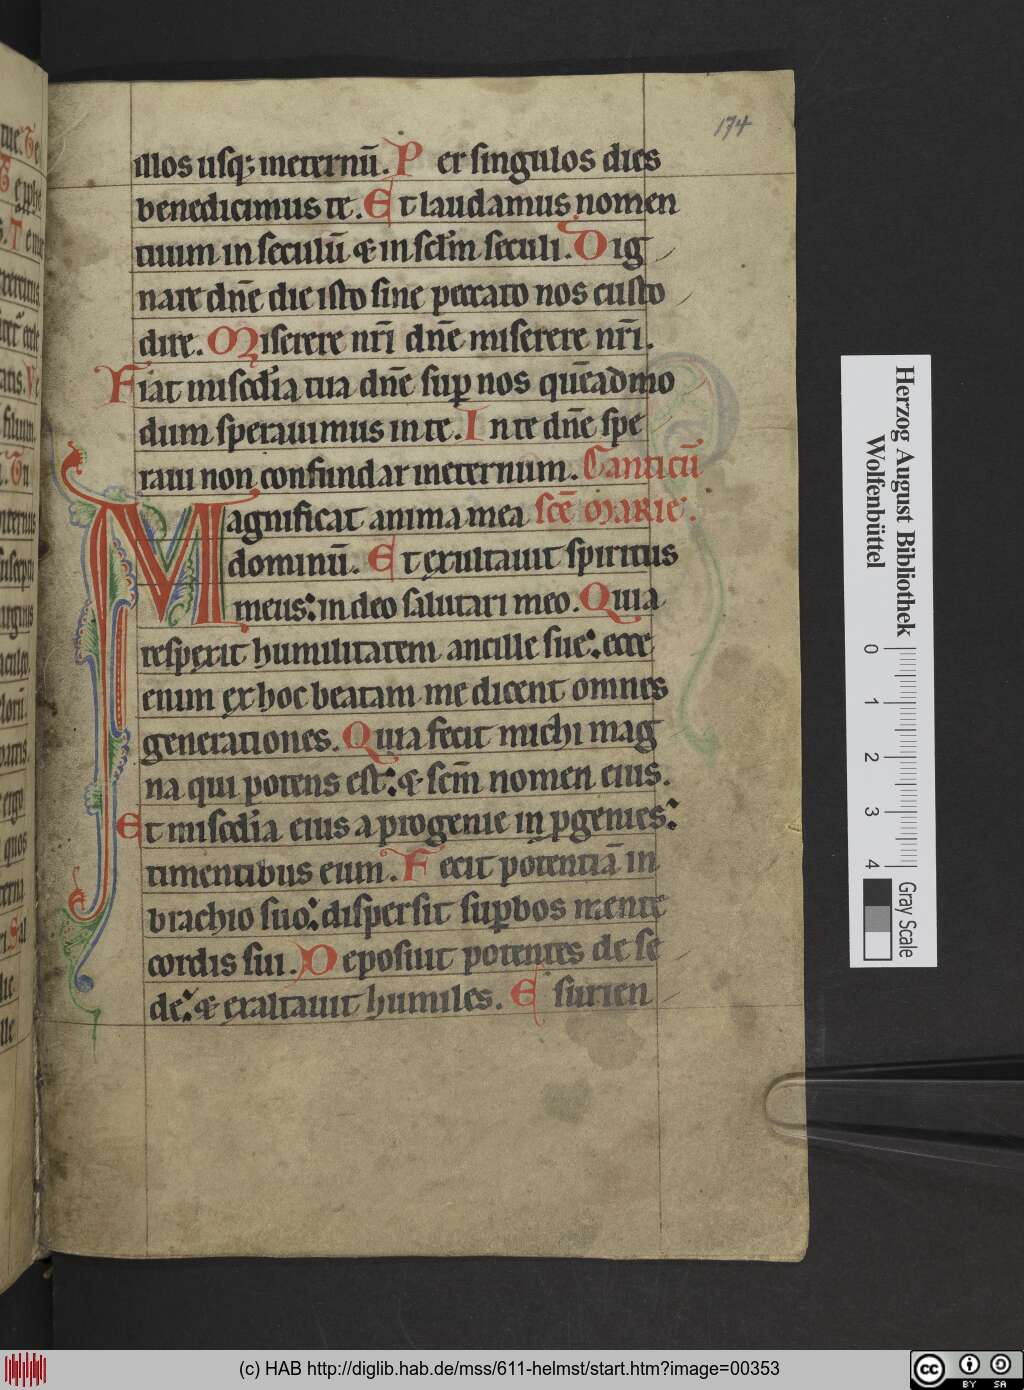 174
illos usq; ineternū. Per singulos dies
benedicimus te. Et laudamus nomen
tuum in seculū & in sclm̄ seculi. Dig
nare dn̄e die isto sine peccato nos custo
dire. Miserere nr̄i dn̄e miserere nr̄i.
Fiat misedīa tua dn̄e sup nos quēadmo
dum sperauimus in te. In te dn̄e spe
raui non confundar ineternum. Canticū
Magnificat anima mea scē marie.
dominū. Et exultauit spiritus
meus: in deo salutari meo. Quia
respexit humilitatem ancille sue: ecce
enim ex hoc beatam me dicent omnes
generationes. Quia fecit michi mag
na qui potens est: & scm̄ nomen eius.
Et misedīa eius a progenie in pgenies:
timentibus eum. Fecit potentiā in
brachio suo: dispersit supbos mente
cordis sui. Deposuit potentes de se
de: & exaltauit humiles. Esurien
Herzog August Bibliothek
Wolfenbüttel
0 1 2 3 4
Gray Scale
(c) HAB http://diglib.hab.de/mss/611-helmst/start.htm?image=00353
cc BY SA